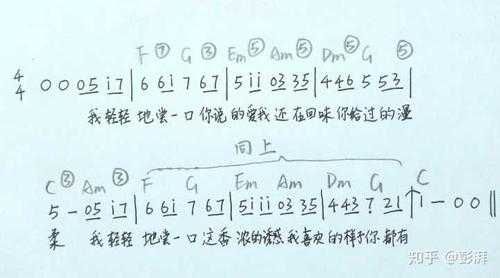 F ⑦ G ③ Em ⑤ Am ⑤ Dm ⑤ G ⑤
4/4 0 0 05 i7 | 6 6i 7 67 | 5 ii 03 35 | 446 5 53 |
我轻轻 地尝一口你说的爱我还在回味你给过的温
同上
C ③ Am ③ F G Em Am Dm G C
5 - 05 i7 | 6 6i 7 67 | 5iii 03 35 | 443 7 21 | i - 0 0 ‖
柔 我轻轻 地尝一口这香浓的诱惑我喜欢的样子你都有
知乎 @彭湃